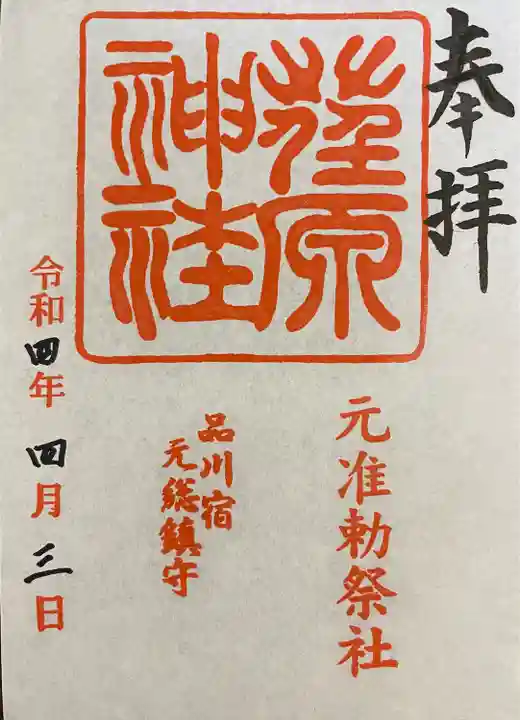 奉拝
荏原
神社
元准勅祭社
品川宿
元総鎮守
令和四年 四月 三日